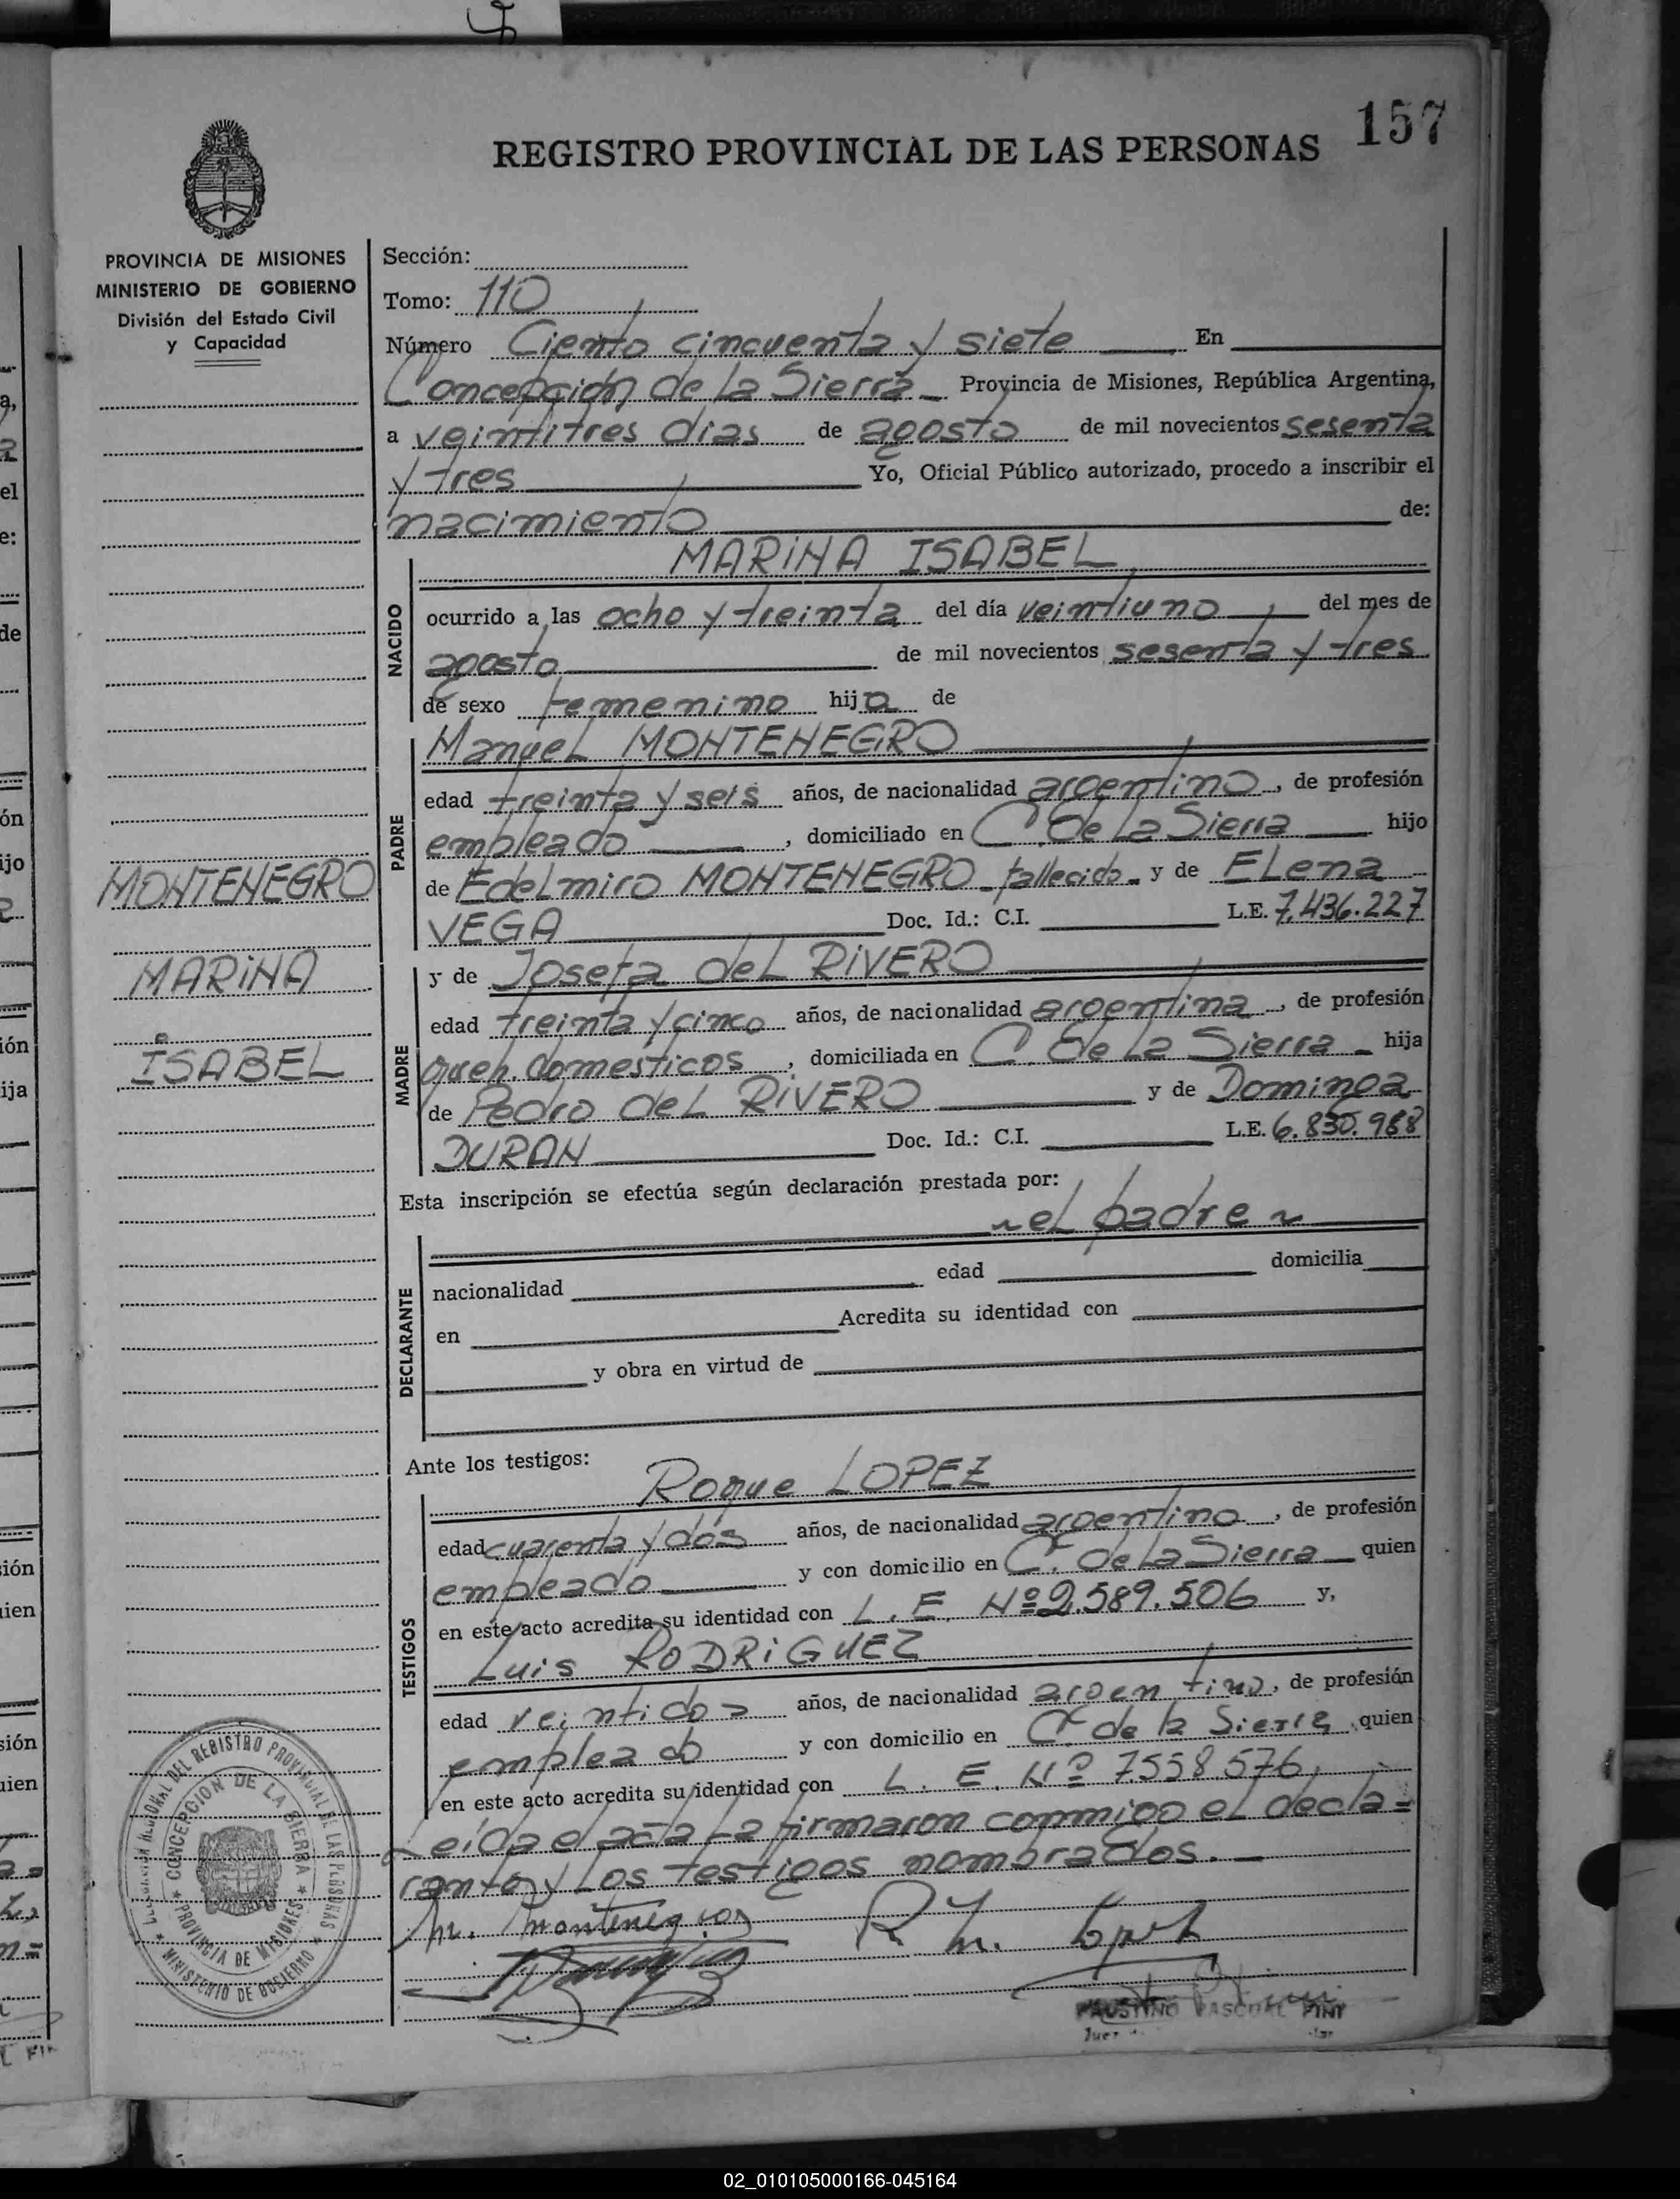 157
REGISTRO PROVINCIAL DE LAS PERSONAS
PROVINCIA DE MISIONES
MINISTERIO DE GOBIERNO
División del Estado Civil
y Capacidad
MONTENEGRO
MARiNA
ISABEL
Sección:
Tomo: 110
Número Ciento cincuenta y siete En
Concepción de La Sierra Provincia de Misiones, República Argentina,
a veintitres dias de agosto de mil novecientos sesenta
y tres Yo, Oficial Público autorizado, procedo a inscribir el
nacimiento de:
MARiNA ISABEL
NACIDO
ocurrido a las ocho y treinta del día veintiuno del mes de
agosto de mil novecientos sesenta y tres
de sexo femenino hija de
PADRE
Manuel MONTENEGRO
edad treinta y seis años, de nacionalidad argentino, de profesión
empleado, domiciliado en C. de La Sierra hijo
de Edelmiro MONTENEGRO - fallecido - y de Elena
VEGA Doc. Id.: C.I. L.E. 7.436.227
MADRE
y de Josefa del RiVERO
edad treinta y cinco años, de nacionalidad argentina, de profesión
queh. domesticos, domiciliada en C. de La Sierra - hija
de Pedro del RiVERO y de Dominga
DURAN Doc. Id.: C.I. L.E. 6.830.988
Esta inscripción se efectúa según declaración prestada por:
el padre
DECLARANTE
nacionalidad edad domicilia
en Acredita su identidad con
y obra en virtud de
Ante los testigos:
TESTIGOS
Roque LOPEZ
edad cuarenta y dós años, de nacionalidad argentino, de profesión
empleado y con domicilio en C. de La Sierra quien
en este acto acredita su identidad con L. E. Nº 2.589.506 y,
Luis RODRiGUEZ
edad veintidos años, de nacionalidad argentino, de profesión
empleado y con domicilio en C. de la Sierra, quien
en este acto acredita su identidad con L. E. Nº 7.558.576,
Leida el acta La firmaron conmigo el decla=
rante y Los testigos nombrados.
M. Montenegro
R M. Lopez
FAUSTINO PASCUAL PINI
Juez
DEL REGISTRO PROVINCIAL DE LAS PERSONAS
CONCEPCION DE LA SIERRA
PROVINCIA DE MISIONES
MINISTERIO DE GOBIERNO
02_010105000166-045164